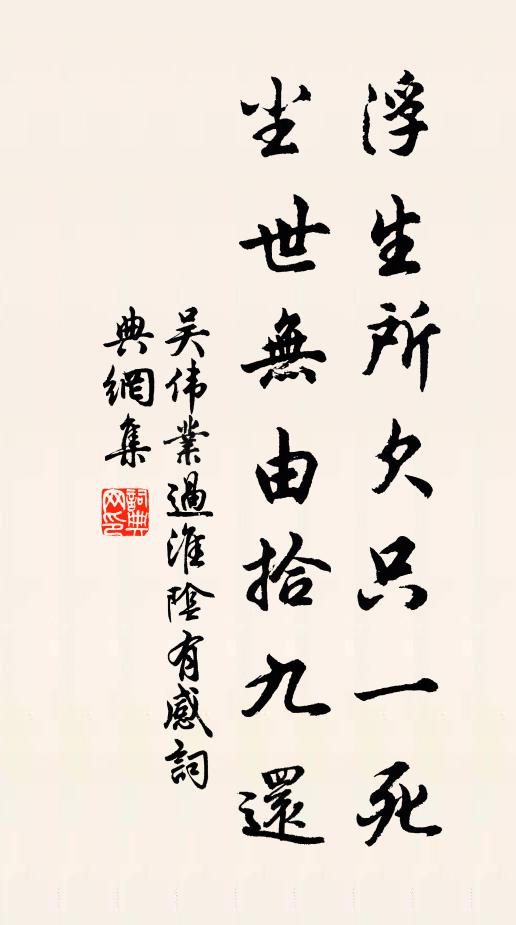 浮生所欠只一死
尘世無由拾九還
吴伟業過淮陰有感詞
典網集
詞典
网印